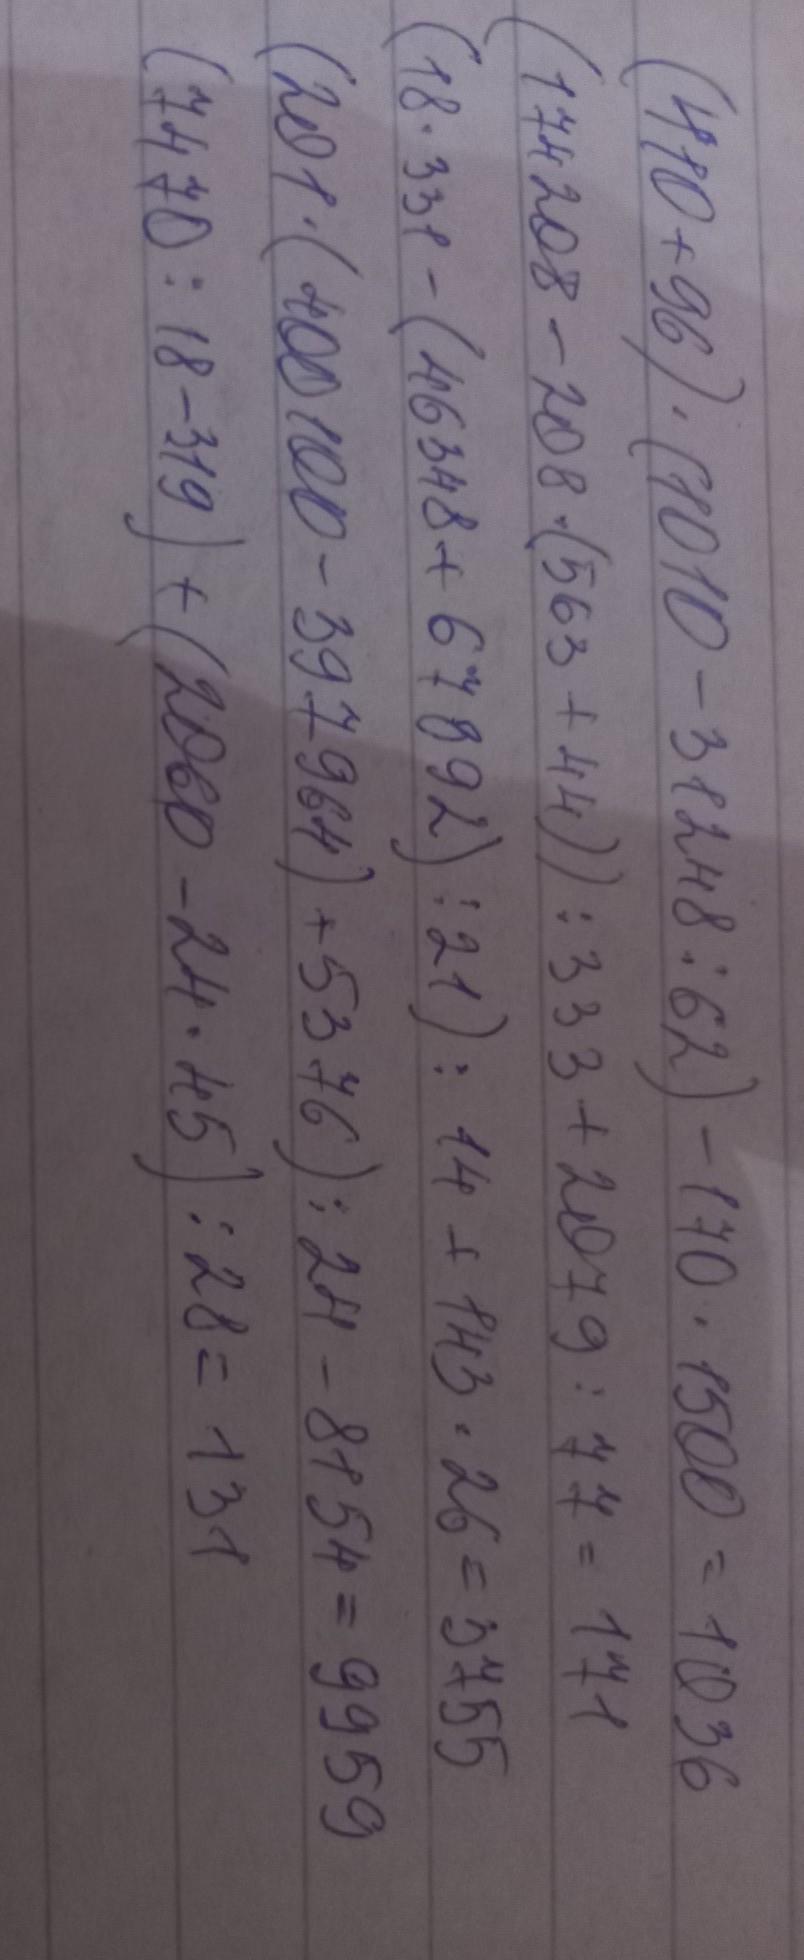 (410+96)·(1010-31248:62)-170·1500=1036
(174208-208·(563+44)):333+2079:77=171
(18·331-(46348+67892):21):14+143·26=3755
(201·(400100-397964)+5376):24-8154=9959
(7470:18-319)+(2060-24·45):28=131